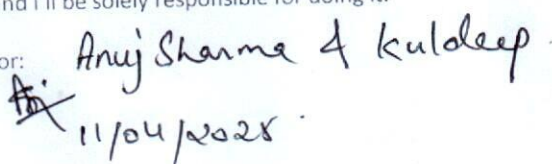 nd I'll be solely responsible for doing it.
or: Anuj Sharma & Kuldeep